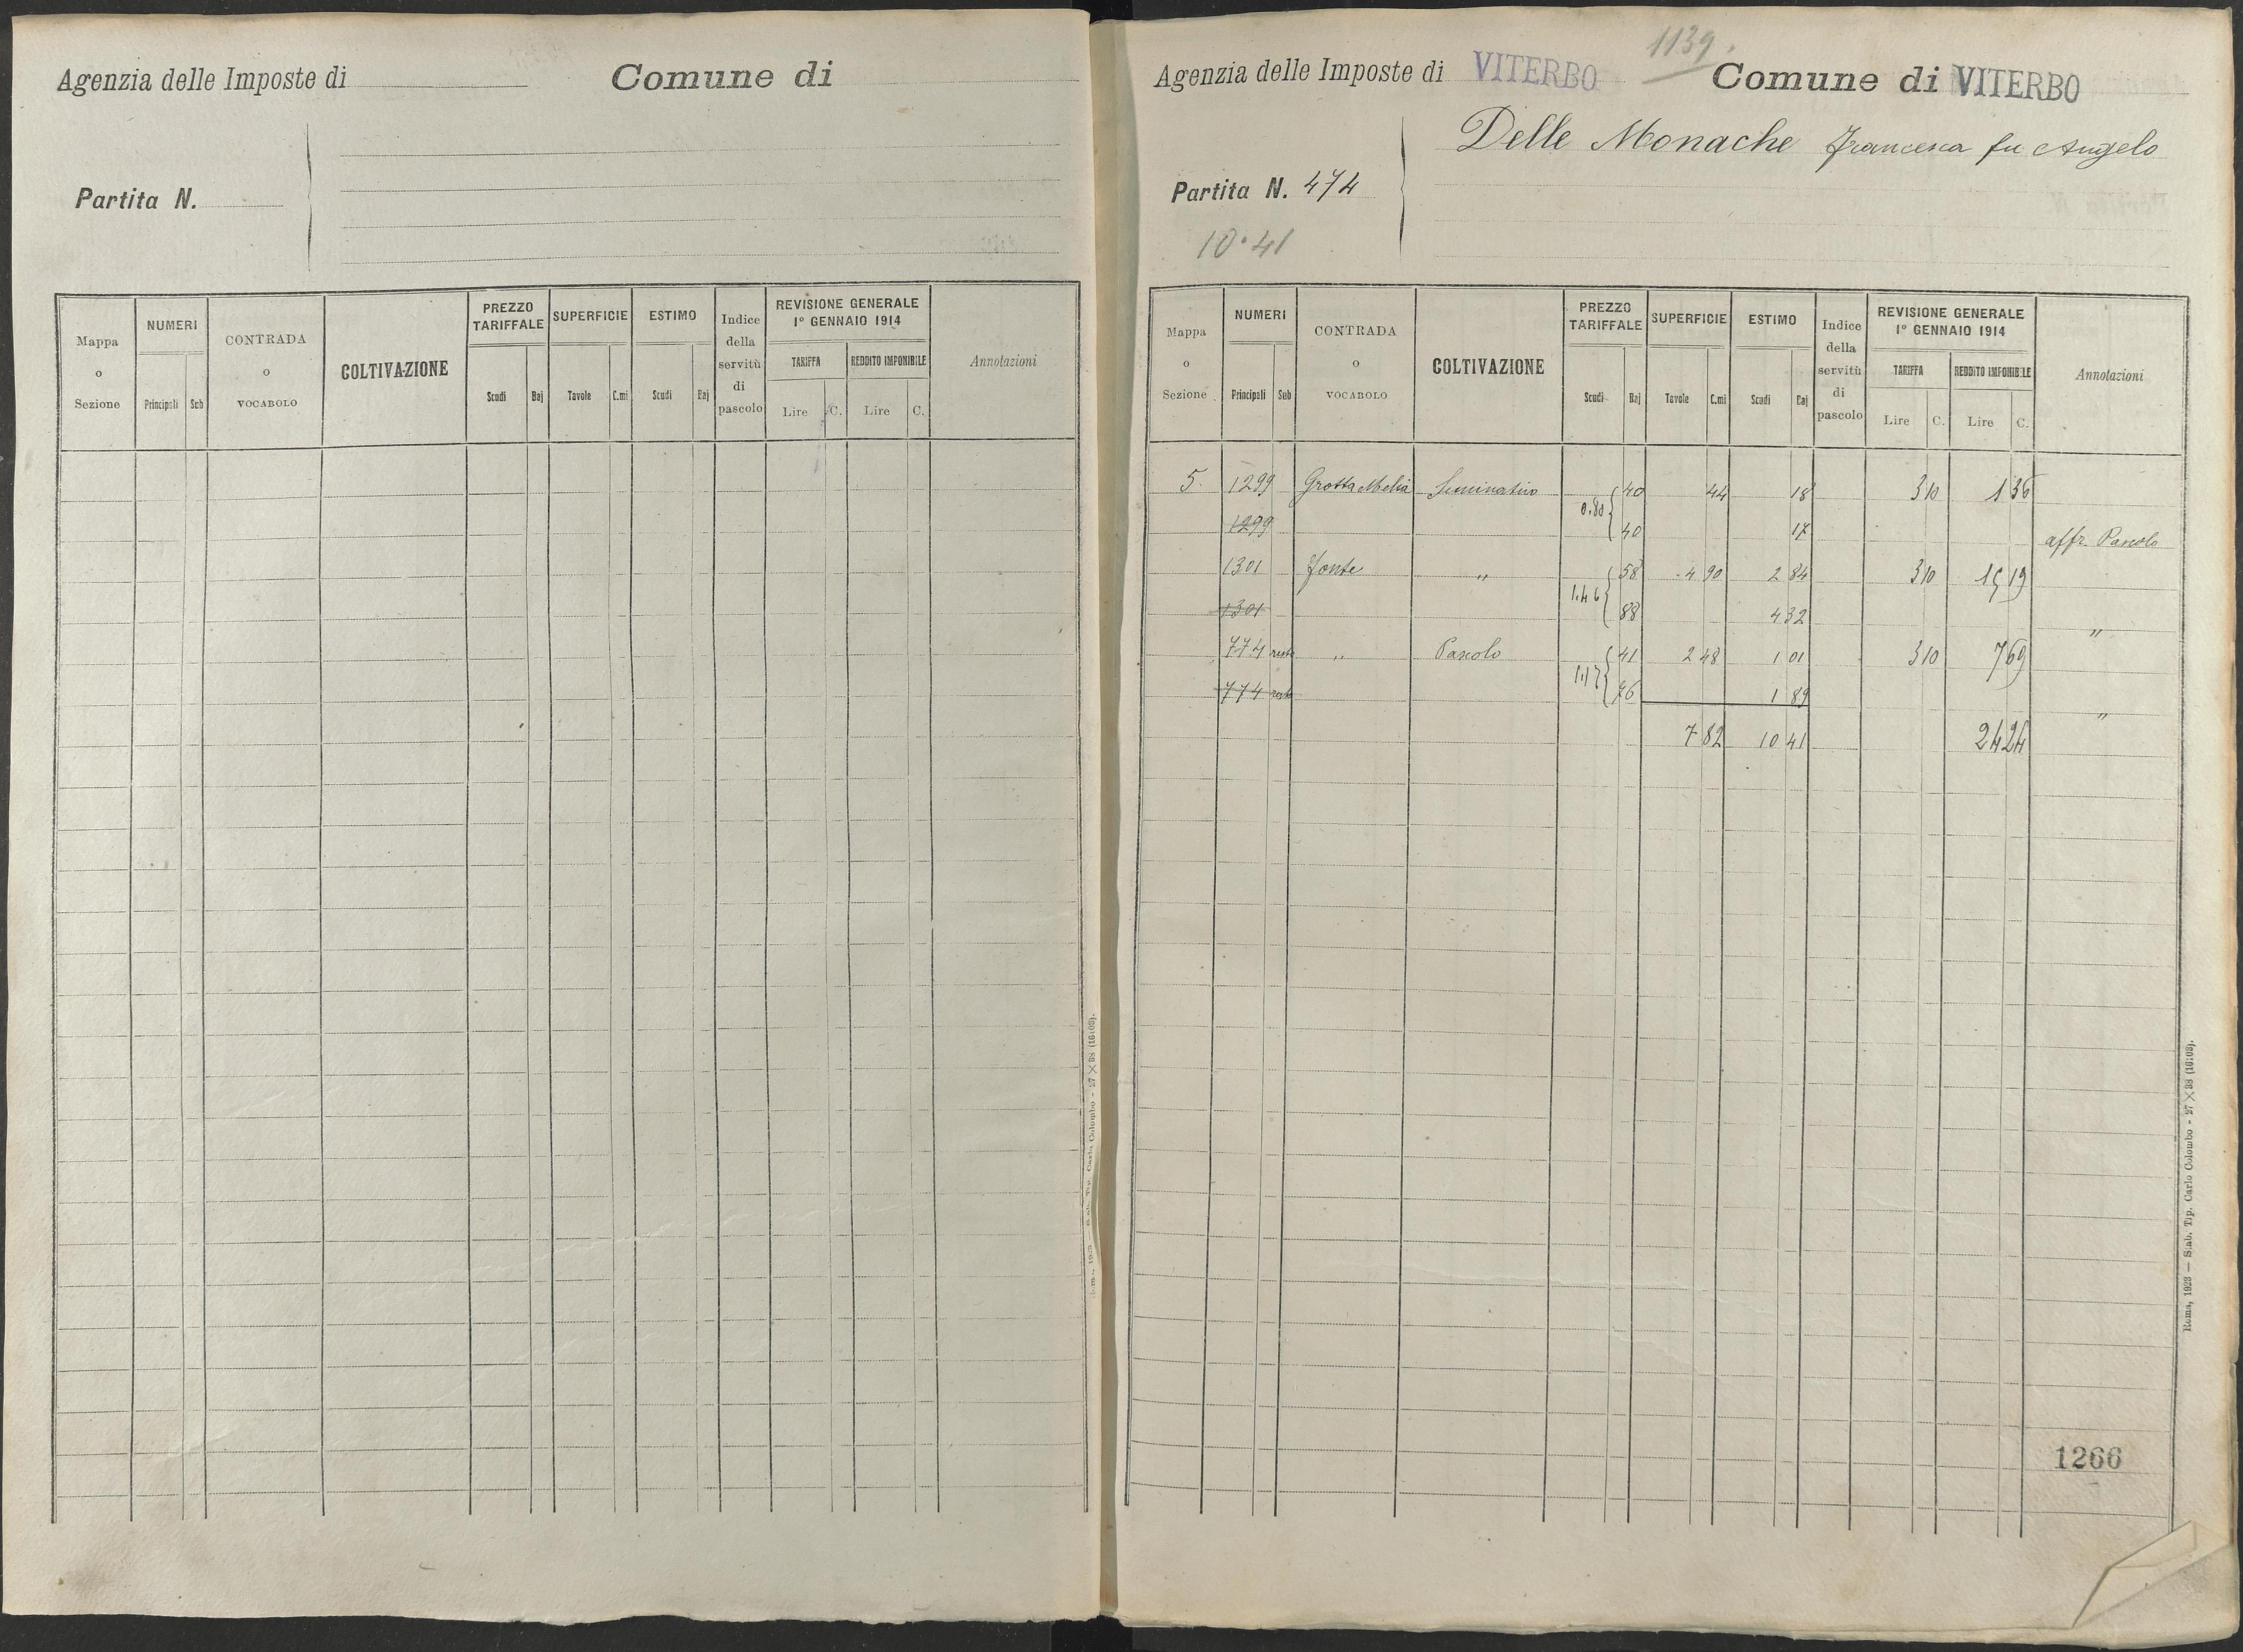 Agenzia delle Imposte di
Comune di
Partita N.
Mappa o Sezione
NUMERI
Principali Sub
CONTRADA o VOCABOLO
COLTIVAZIONE
PREZZO TARIFFALE
Scudi Baj
SUPERFICIE
Tavole C.mi
ESTIMO
Scudi Baj
Indice della servitù di pascolo
REVISIONE GENERALE
1º GENNAIO 1914
TARIFFA REDDITO IMPONIBILE
Lire C. Lire C.
Annotazioni
1139.
Agenzia delle Imposte di VITERBO Comune di VITERBO
Delle Monache Francesca fu Angelo
Partita N. 474
10.41
Mappa o Sezione
NUMERI
Principali Sub
CONTRADA o VOCABOLO
COLTIVAZIONE
PREZZO TARIFFALE
Scudi Baj
SUPERFICIE
Tavole C.mi
ESTIMO
Scudi Baj
Indice della servitù di pascolo
REVISIONE GENERALE
1º GENNAIO 1914
TARIFFA REDDITO IMPONIBILE
Lire C. Lire C.
Annotazioni
5. 1299 Grotta Melia Seminativo 0.80 40 44 18 3 10 1 36
1299 40 17 affr. Pascolo
1301 fonte " 1.46 58 4 90 2 84 3 10 15 19
1301 88 4 32 "
774 resto " Pascolo 1.17 41 2 48 1 01 3 10 7 69
774 resto 76 1 89 "
7 82 10 41 24 24
1266
Roma, 1923 — Stab. Tip. Carlo Colombo - 27 × 38 (16:03).